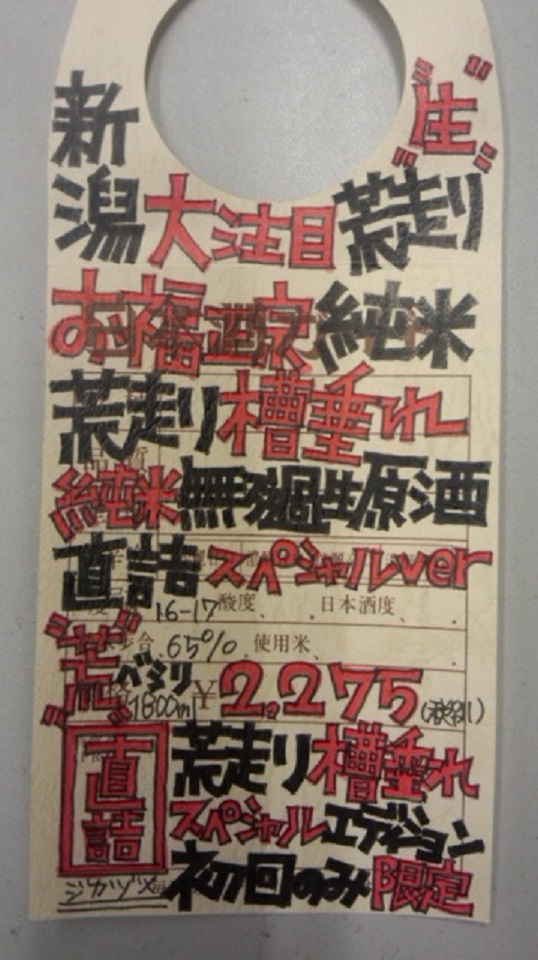 "生"
新潟 大注目 荒走り
お福酒 純米
荒走り 槽垂れ
純米 無濾過生原酒
直詰 スペシャルver
16-17 酸度 日本酒度
歩合 65% 使用米
"荒" バシリ
1800ml ¥2,275
直詰 荒走り 槽垂れ
スペシャルエディション
ジカヅメ 初回のみ 限定